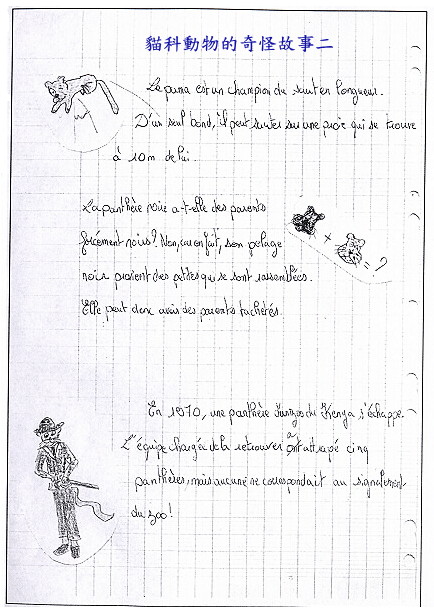 貓科動物的奇怪故事二
Le puma est un champion du saut en longueur.
D'un seul bond, il peut sauter sur une proie qui se trouve
à 10m de lui.
La panthère noire a-t-elle des parents
forcément noirs? Non, car en fait, son pelage
noir provient des petites qui se sont rassemblées.
Elle peut donc avoir des parents tachetés.
+
= ?
En 1970, une panthère du Kenya s'échappe.
L'équipe chargée de la retrouver a attrapé cinq
panthères, mais aucune ne correspondait au signalement
du zoo!